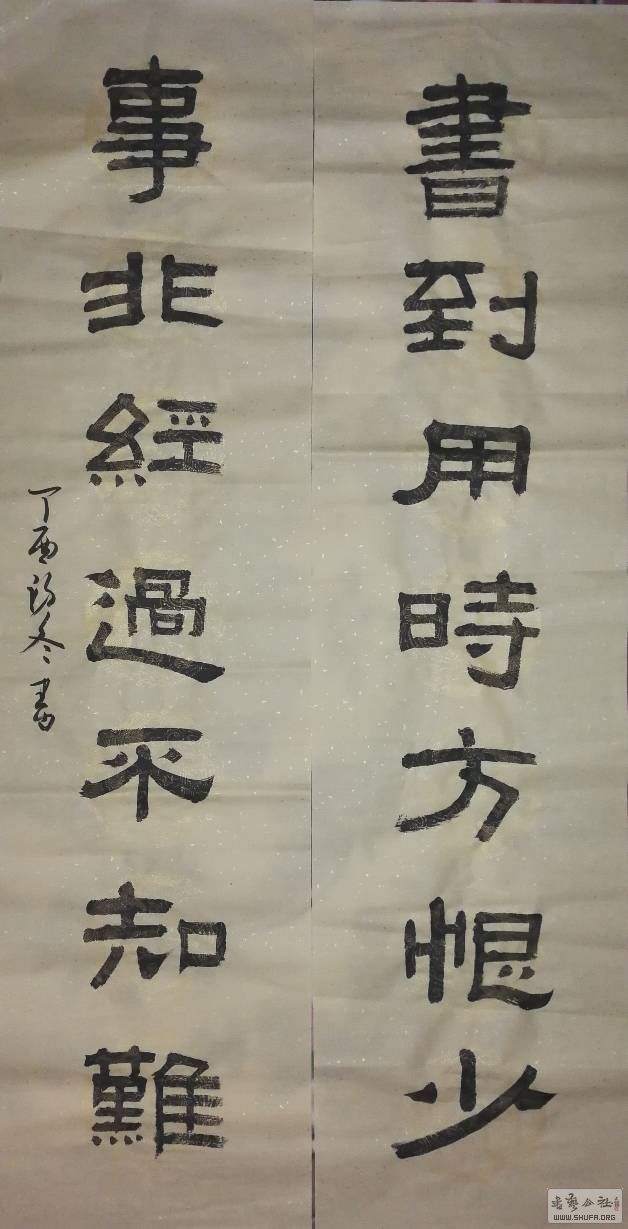 書到用時方恨少
事非經過不知難
丁酉初冬書
WWW.SHUFA.ORG